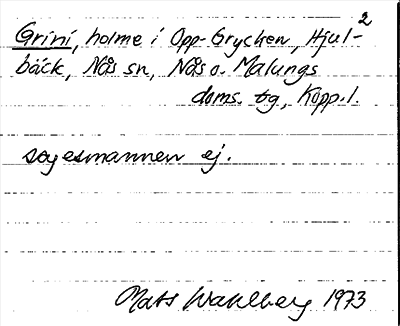 2
Grini, holme i Opp-Grycken, Hjul-
bäck, Nås sn, Nås o. Malungs
doms. tg, Kopp. l.
sagesmannen ej.
Mats Wahlberg 1973